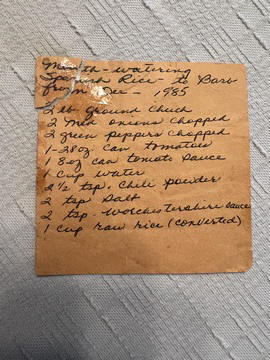 Mouth-watering
Spanish Rice - to Barb
from Dee - 1985
2 lb ground chuck
2 med onions chopped
2 green peppers chopped
1-28oz can tomatoes
1 8oz can tomato sauce
1 cup water
2 1/2 tsp. chili powder
2 tsp salt
2 tsp Worchestershire sauce
1 cup raw rice (converted)